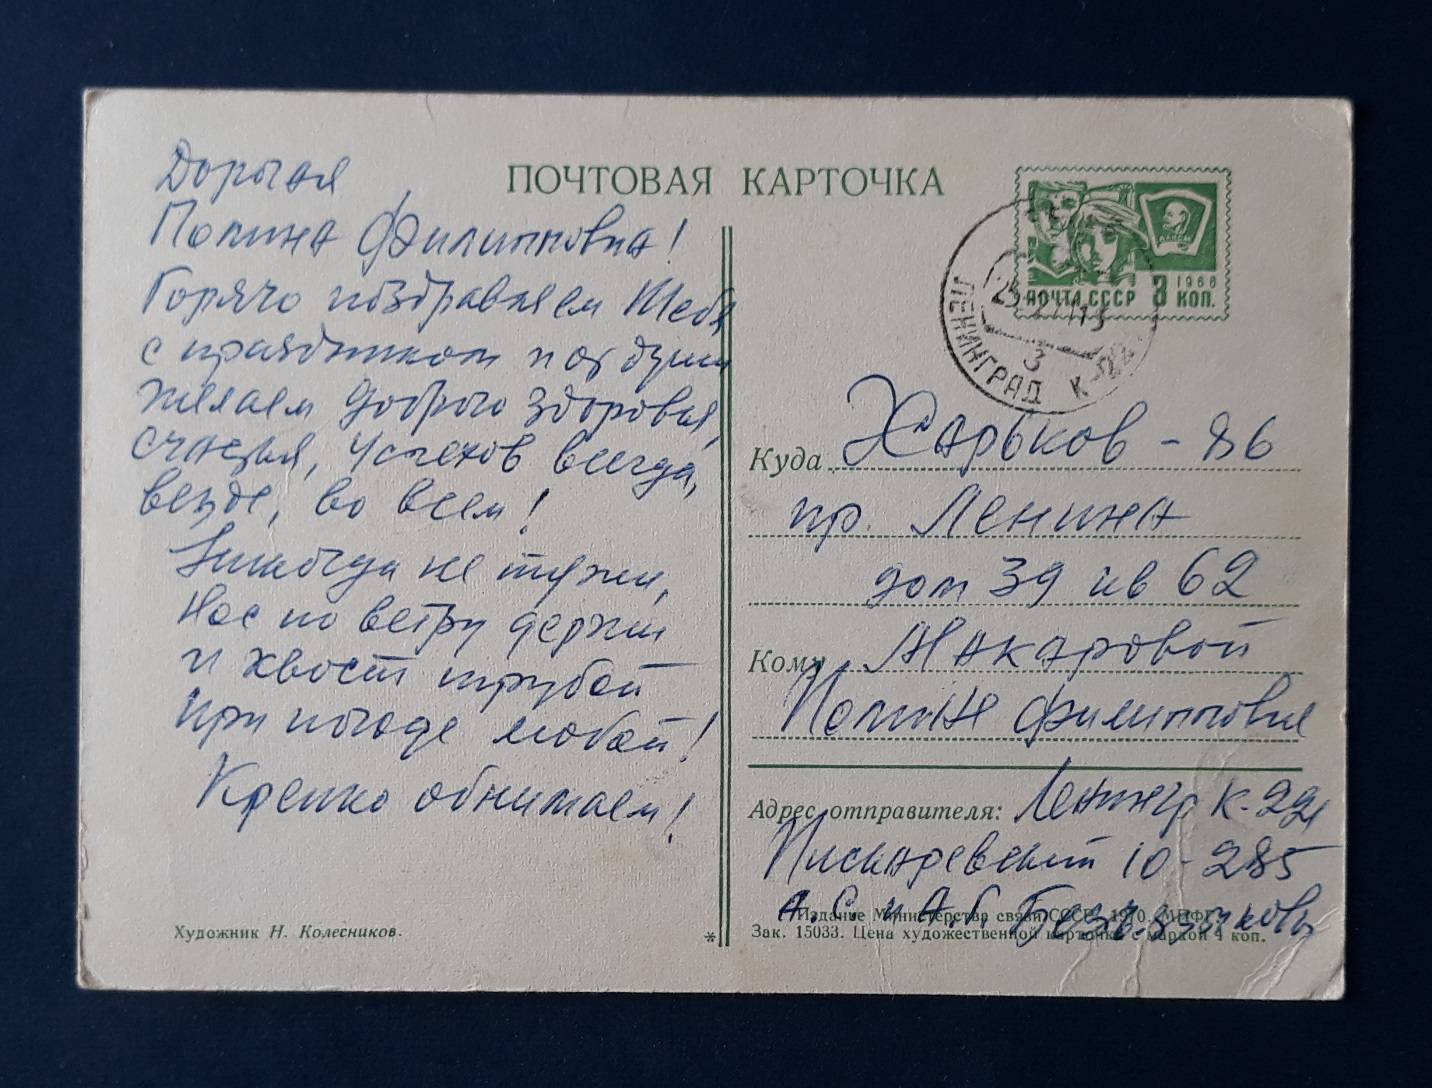 ПОЧТОВАЯ КАРТОЧКА
Дорогая
Полина Филипповна!
Горячо поздравляем Тебя
с праздником и от души
желаем доброго здоровья,
счастья, успехов всегда,
везде, во всем!
Никогда не тужи,
Нос по ветру держи
и хвост трубой
при погоде любой!
Крепко обнимаем!
Художник Н. Колесников.
*
ПОЧТА СССР 3 КОП.
1966
ЛЕНИНГРАД К-
3
Куда Харьков - 86
пр. Ленина
дом 39 кв 62
Кому Макаровой
Полине Филипповне
Адрес отправителя: Ленингр К-221
Пискаревский 10-285
А.С. и А.Г.
Издание Министерства связи СССР. 1970. МПФГ.
Зак. 15033. Цена художественной карточки с маркой 4 коп.